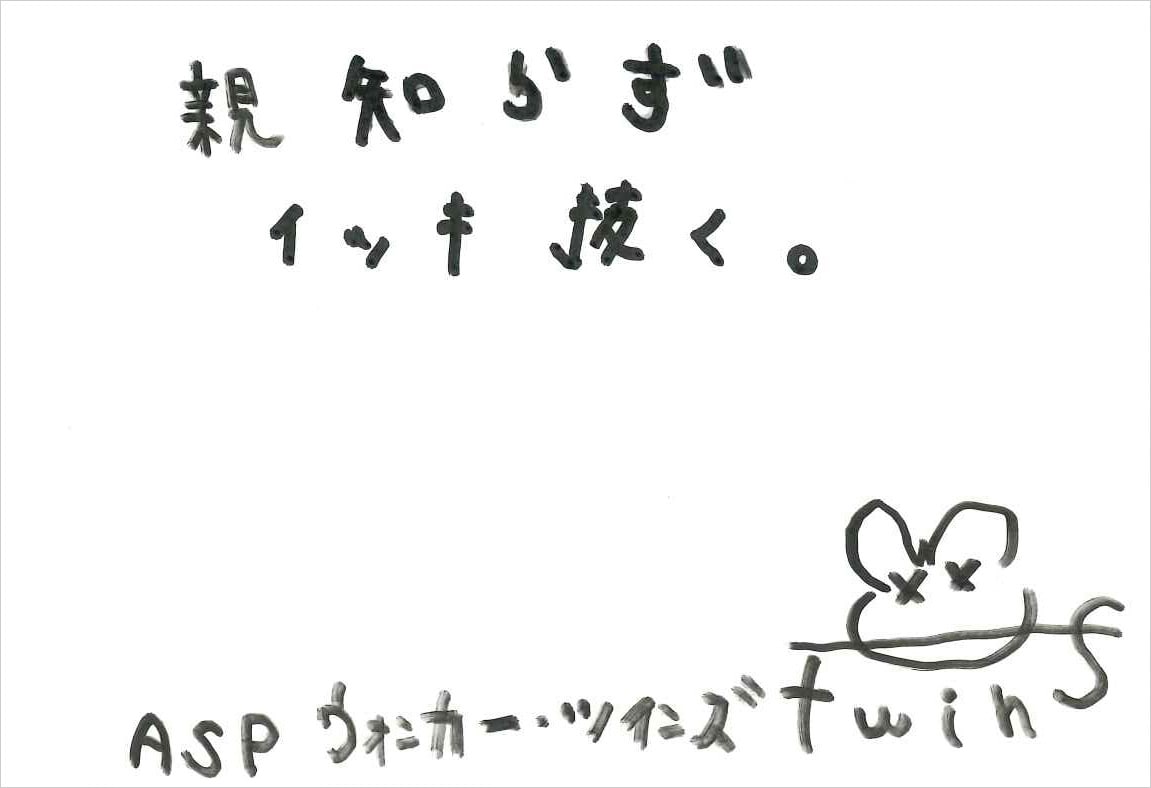 親知らず
イッキ抜く。
ASP ウォニカー・ツインズ twins